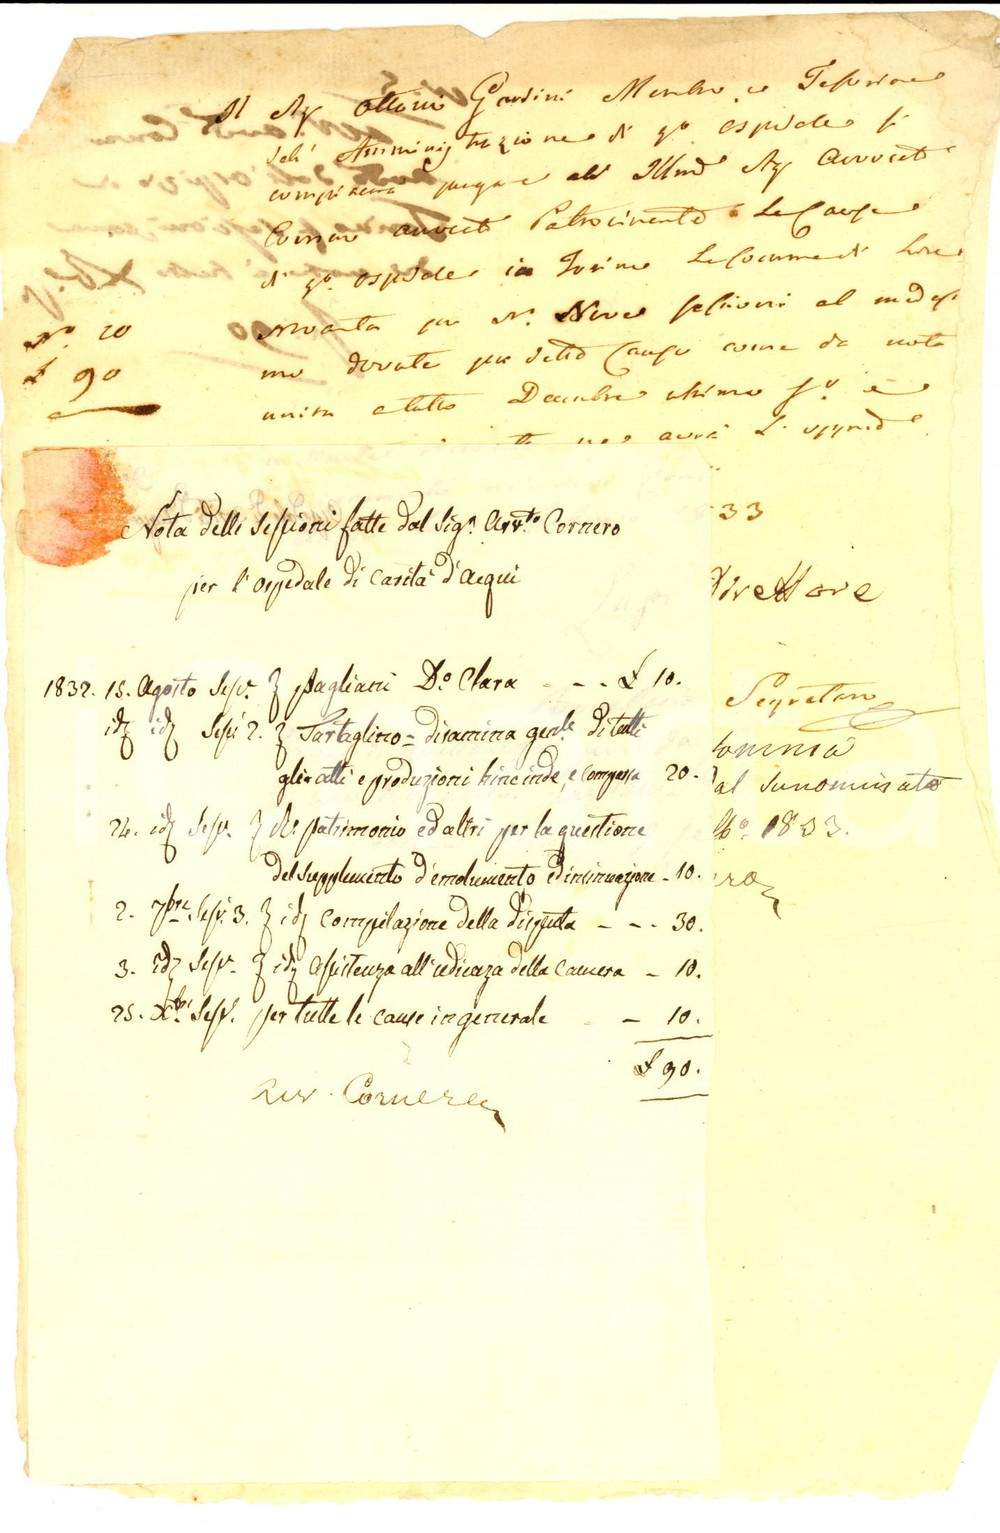 Al Sig. Ottavio Gardini Membro, e Tesoriere
dell' Amministrazione di q.o ospedale si
compiacerà pagare all' Ill.mo Sig. Avvocato
Cornero avvocato Patrocinante Le Cause
di q.o ospedale in Torino La Somma di Lire
Novanta per N.o Nove sessioni al medesi
mo dovute per dette Cause come da nota
unita a tutto Decembre ultimo
avrà
N.o 20
£ 90
33
Direttore
Segretaro
somma
dal sunominato
1833.
Nota delle Sessioni fatte dal Sig.r Avv.to Cornero
per l'ospedale di Carità d'Acqui
1832. 15. Agosto Sess.e pagliani D.o Clara - - - £ 10.
id id Sess.i 2. Sartaglino = disamina gen.le di tutti
gli atti e produzioni hinc inde, e comparsa 20.
24. id Sess.e patrimonio ed altri per la questione
del supplemento d'emolumento d'insinuazione - 10.
2. 7bre Sess.i 3. id compilazione della disputa - - - 30.
3. id Sess.e id assistenza all'udienza della Camera - 10.
25. Xbre Sess.e per tutte le cause in generale - - 10.
£ 90.
Avv. Cornero